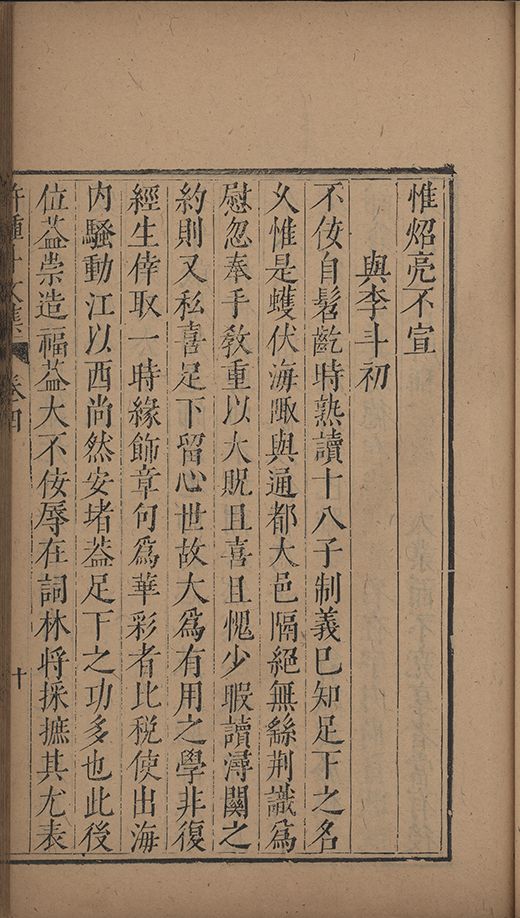 惟炤亮不宣
與李斗初
不佞自髫齔時熟讀十八子制義已知足下之名
久惟是蠖伏海陬與通都大邑隔絕無繇荆識爲
慰忽奉手敎重以大貺且喜且愧少暇讀潯關之
約則又私喜足下留心世故大爲有用之學非復
經生倖取一時緣飾章句爲華彩者比稅使出海
内騷動江以西尚然安堵葢足下之功多也此後
位葢崇造福葢大不佞辱在詞林将採摭其尤表
許鍾斗文集 卷四 十